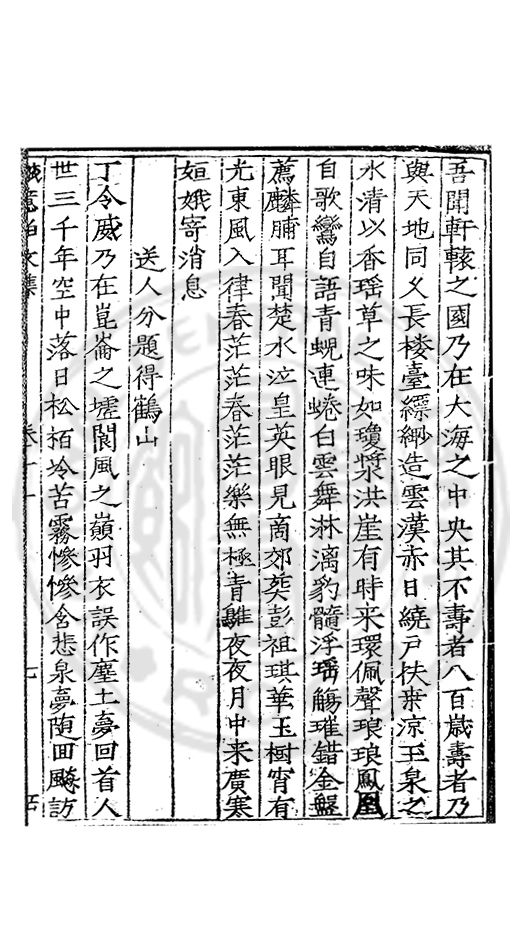 吾聞軒轅之國乃在大海之中央其不壽者八百歲壽者乃
與天地同乂長楼臺縹緲造雲漢赤日繞戶扶桒凉玉泉之
水清以香瑤草之味如瓊漿洪崖有時来環佩聲琅琅鳳凰
自歌鸞自語青蜺連蜷白雲舞淋漓豹髓浮瑤觴璀錯金盤
薦麟脯耳聞楚水泣皇英眼見商郊葬彭祖琪華玉樹宵有
光東風入律春茫茫春茫茫樂無極青鵻夜夜月中来廣寒
姮娥寄消息
送人分題得鶴山
丁令威乃在崑崙之墟閬風之巔羽衣誤作塵土夢回首人
世三千年空中落日松栢冷苦霧慘慘含悲泉夢随回飇訪
誠意伯文集 卷十一 七